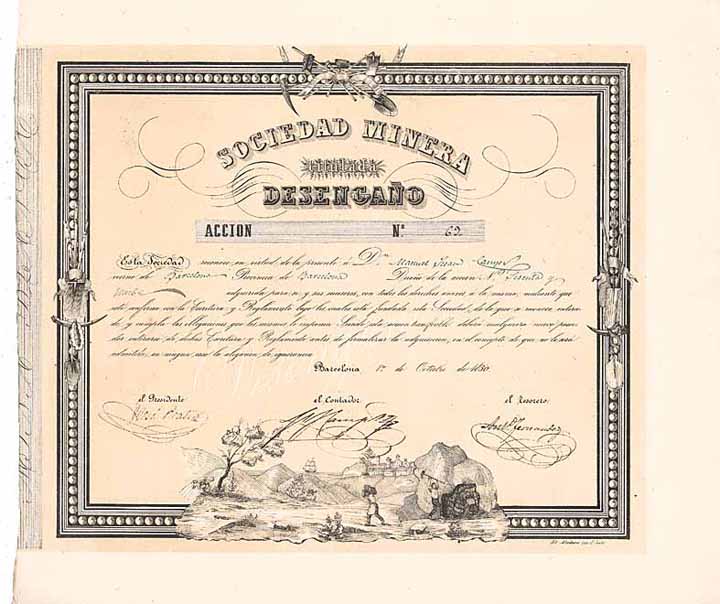 SOCIEDAD MINERA
titulada
DESENGAÑO
ACCION N.º 62.
Esta Sociedad reconoce en virtud de la presente á D.n Manuel
vecino de Barcelona Provincia de Barcelona Dueño de la accion N.º Sesenta y
adquirida para si y sus sucesores, con todos los derechos anexos á la misma, mediante que
esté conforme con la Escritura y Reglamento bajo los cuales está fundada esta Sociedad, de lo que se reconoce entera-
do, y cumpla las obligaciones que los mismos le imponen. Siendo esta accion transferible deberá cualquiera nuevo posee-
dor enterarse de dichos Escritura y Reglamento antes de formalizar la adquisicion, en el concepto de que no le será
admitida en ningun caso la alegacion de ignorancia.
Barcelona 1.º de Octubre de 1850.
el Presidente el Contador. el Tesorero.
Fernandez